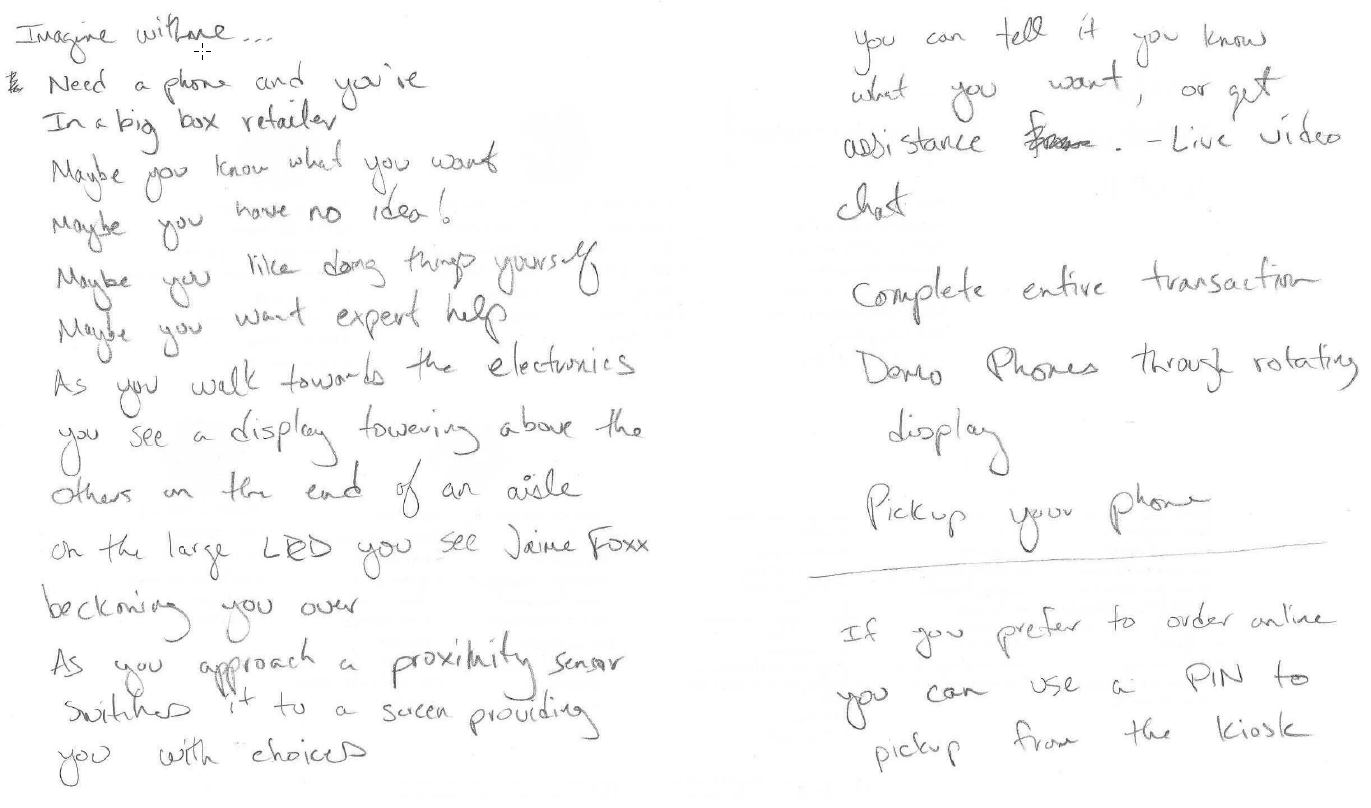 Imagine with me...
Need a phone and you're
In a big box retailer
Maybe you know what you want
Maybe you have no idea!
Maybe you like doing things yourself
Maybe you want expert help
As you walk towards the electronics
you see a display towering above the
others on the end of an aisle
on the large LED you see Jaime Foxx
beckoning you over
As you approach a proximity sensor
switches it to a screen providing
you with choices
you can tell it you know
what you want, or get
assistance . - Live video
chat
Complete entire transaction
Demo Phones through rotating
display
Pickup your phone
If you prefer to order online
you can use a PIN to
pickup from the kiosk